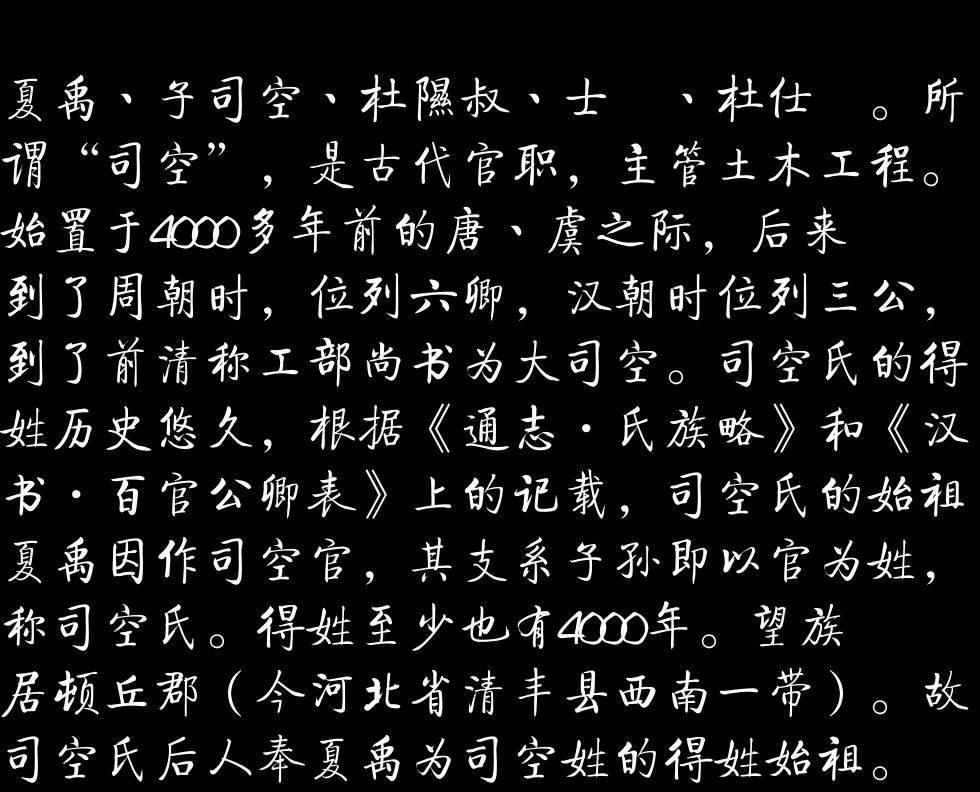 夏禹、子司空、杜隰叔、士　、杜仕　。所
谓“司空”，是古代官职，主管土木工程。
始置于4000多年前的唐、虞之际，后来
到了周朝时，位列六卿，汉朝时位列三公，
到了前清称工部尚书为大司空。司空氏的得
姓历史悠久，根据《通志·氏族略》和《汉
书·百官公卿表》上的记载，司空氏的始祖
夏禹因作司空官，其支系子孙即以官为姓，
称司空氏。得姓至少也有4000年。望族
居顿丘郡（今河北省清丰县西南一带）。故
司空氏后人奉夏禹为司空姓的得姓始祖。